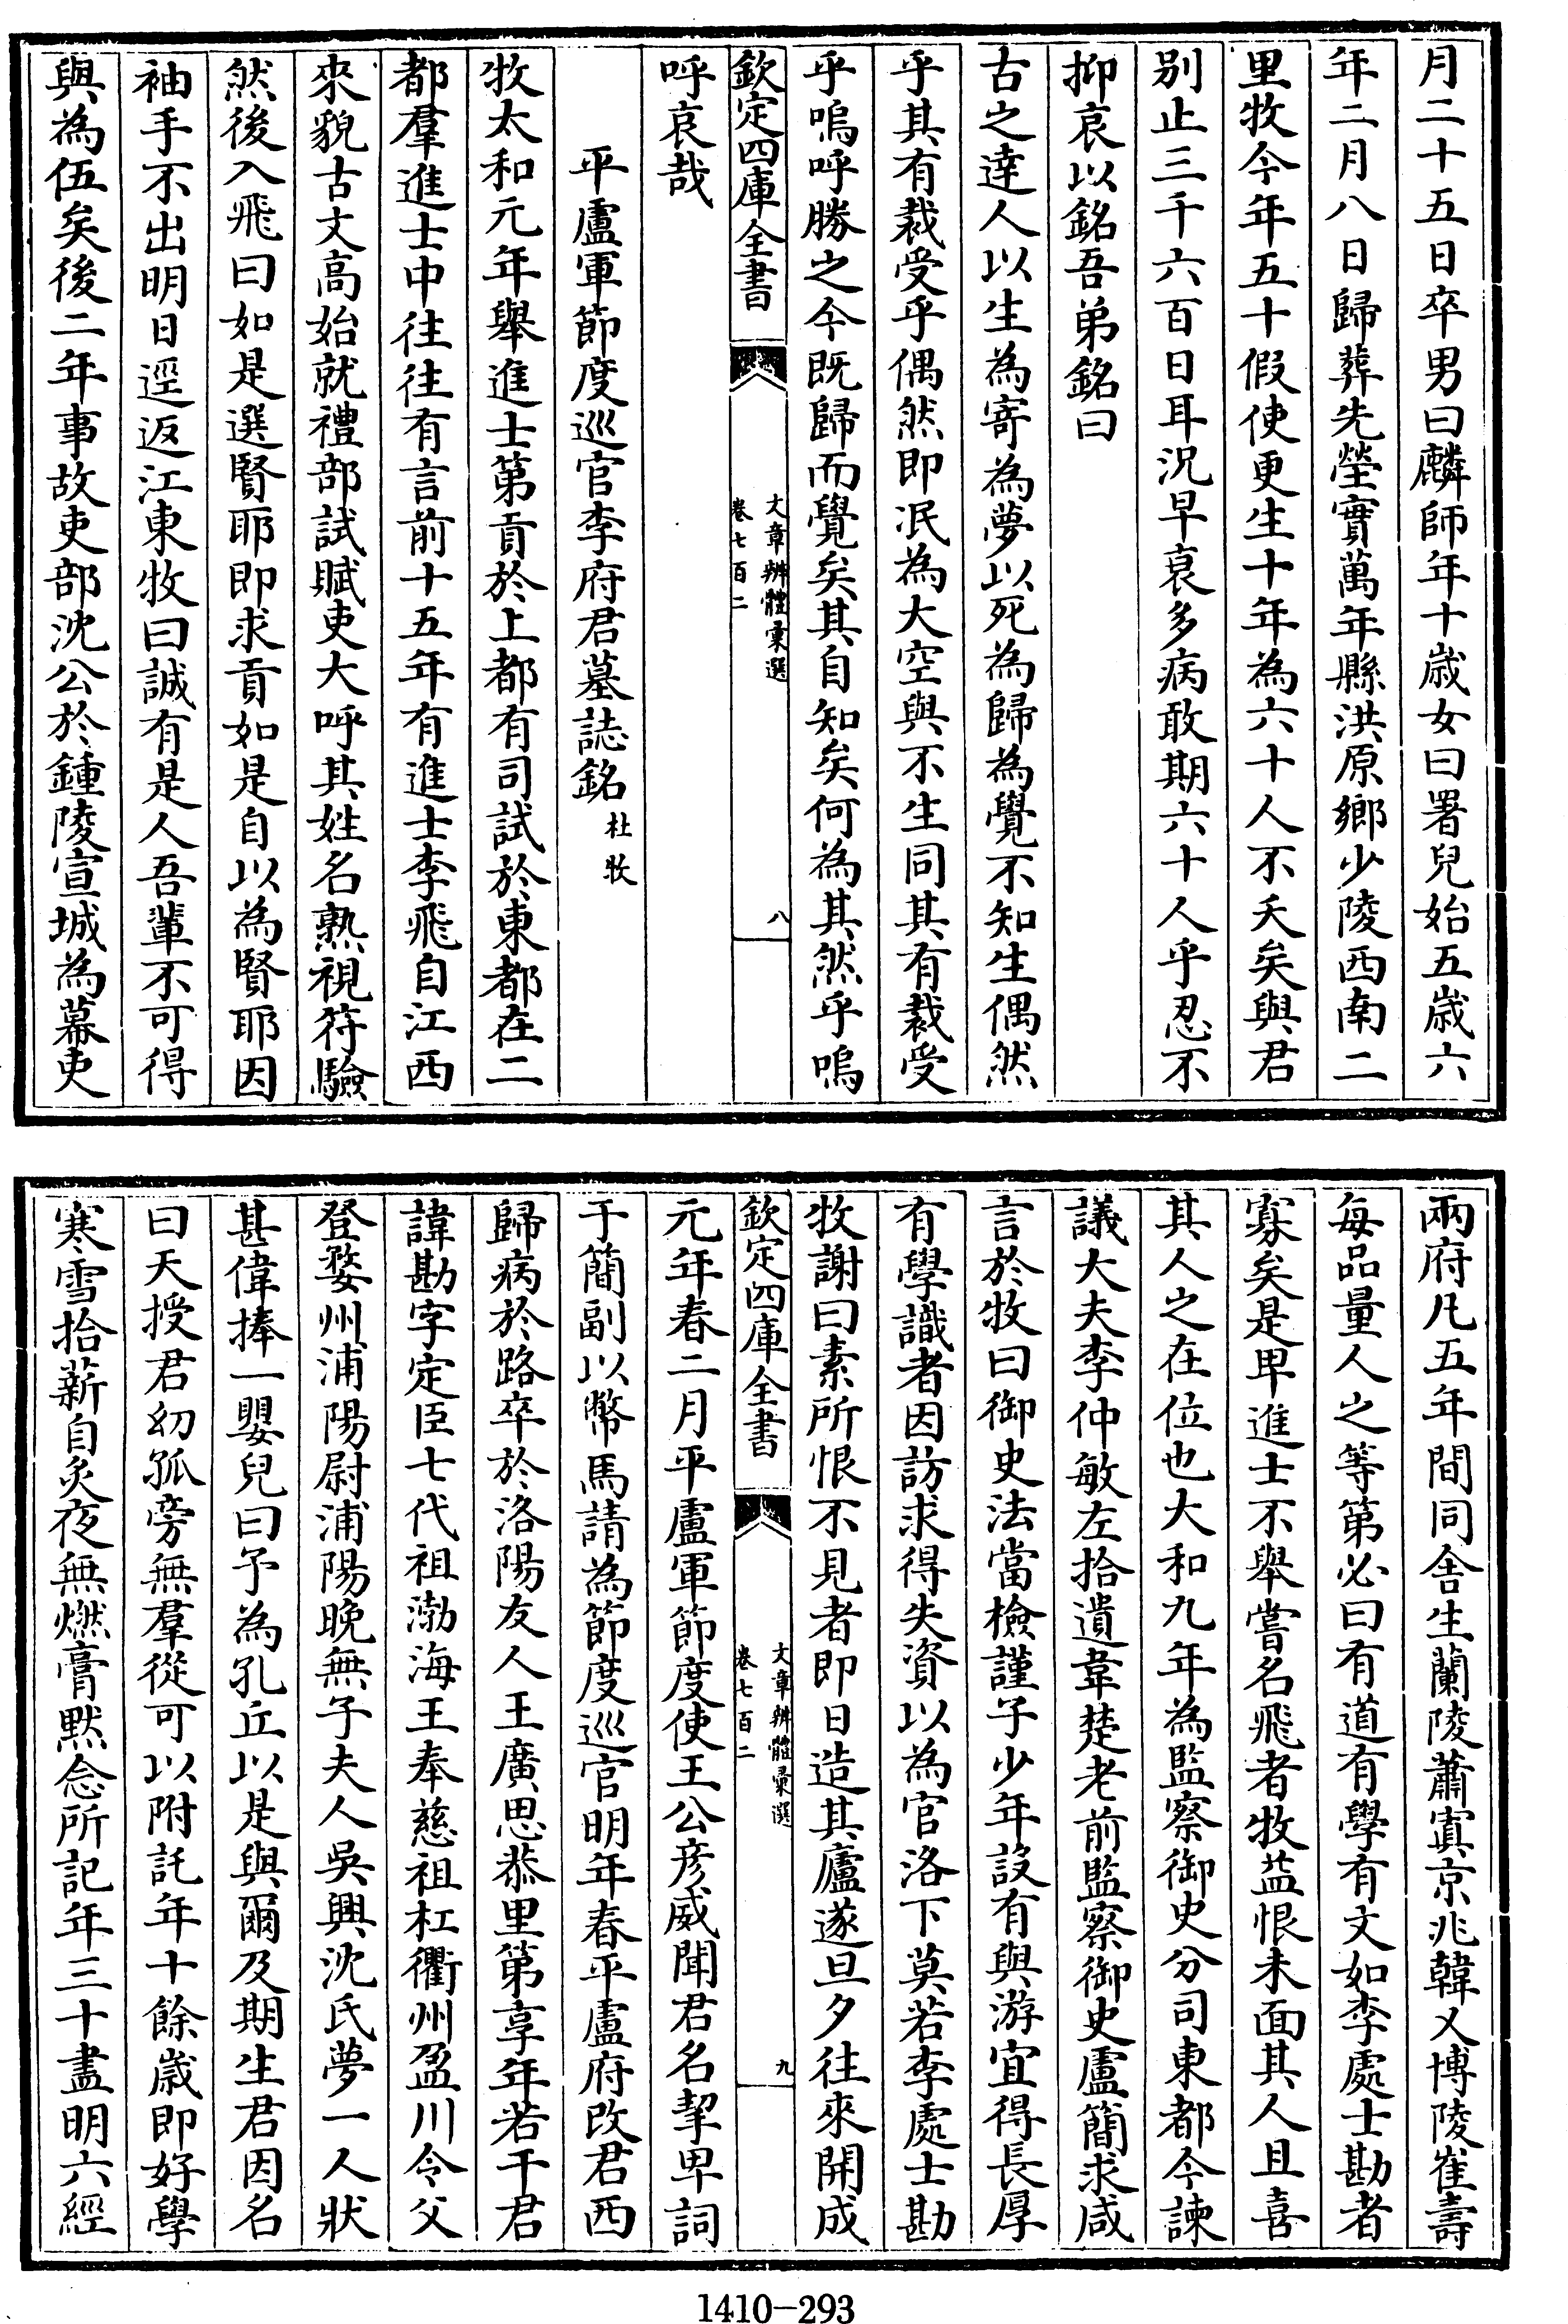 月二十五日卒男曰麟師年十歲女曰署兒始五歲六
年二月八日歸葬先塋實萬年縣洪原鄉少陵西南二
里牧今年五十假使更生十年為六十人不夭矣與君
别止三千六百日耳況早衰多病敢期六十人乎忍不
抑哀以銘吾弟銘曰
古之達人以生為寄為夢以死為歸為覺不知生偶然
乎其有裁受乎偶然即泯為大空與不生同其有裁受
乎嗚呼勝之今既歸而覺矣其自知矣何為其然乎嗚
欽定四庫全書
文章辨體彙選
卷七百二
八
呼哀哉
平盧軍節度巡官李府君墓誌銘 杜牧
牧太和元年舉進士第貢於上都有司試於東都在二
都羣進士中往往有言前十五年有進士李飛自江西
來貌古文高始就禮部試賦吏大呼其姓名熟視符驗
然後入飛曰如是選賢耶即求貢如是自以為賢耶因
袖手不出明日逕返江東牧曰誠有是人吾輩不可得
與為伍矣後二年事故吏部沈公於鍾陵宣城為幕吏
兩府凡五年間同舍生蘭陵蕭寘京兆韓乂博陵崔壽
每品量人之等第必曰有道有學有文如李處士勘者
寡矣是卑進士不舉嘗名飛者牧益恨未面其人且喜
其人之在位也大和九年為監察御史分司東都今諫
議大夫李仲敏左拾遺韋楚老前監察御史盧簡求咸
言於牧曰御史法當檢謹子少年設有與游宜得長厚
有學識者因訪求得失資以為官洛下莫若李處士勘
牧謝曰素所恨不見者即日造其廬遂旦夕往來開成
欽定四庫全書
文章辨體彙選
卷七百二
九
元年春二月平盧軍節度使王公彦威聞君名挈卑詞
于簡副以幣馬請為節度巡官明年春平盧府改君西
歸病於路卒於洛陽友人王廣思恭里第享年若干君
諱勘字定臣七代祖渤海王奉慈祖杠衢州盈川令父
登婺州浦陽尉浦陽晚無子夫人吳興沈氏夢一人狀
甚偉捧一嬰兒曰予為孔丘以是與爾及期生君因名
曰天授君幼孤旁無羣從可以附託年十餘歲即好學
寒雪拾薪自炙夜無燃膏默念所記年三十盡明六經
1410-293